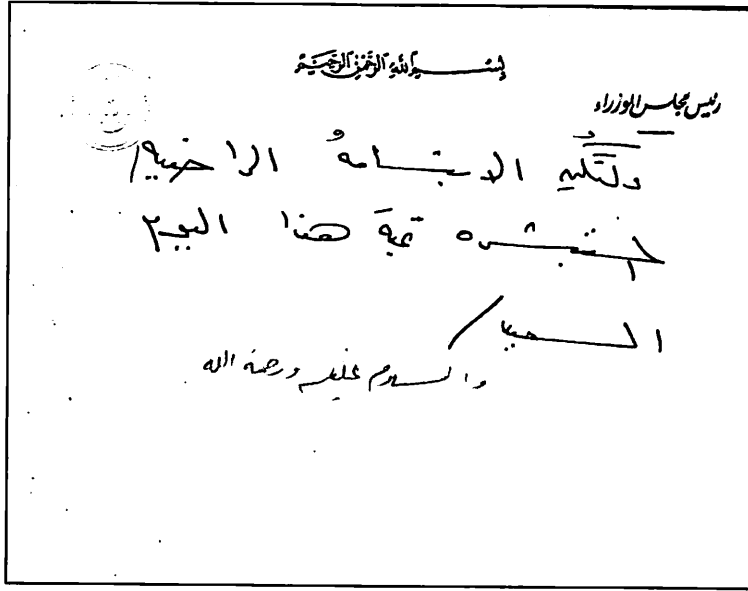 بسم الله الرحمن الرحيم
رئيس مجلس الوزراء
ولتكن الابتسامةُ الراضيه
المستبشره تحيةَ هذا اليوم
السعيد
والسلام عليكم ورحمة الله